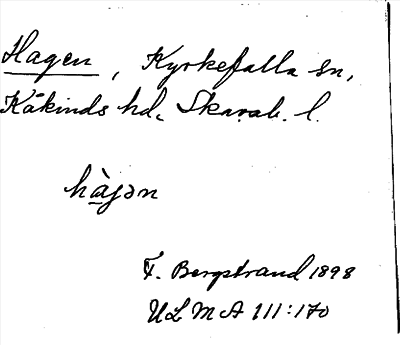 Hagen, Kyrkefalla sn,
Kåkinds hd, Skarab. l.
hàjən
F. Bergstrand 1898
ULMA 111:170